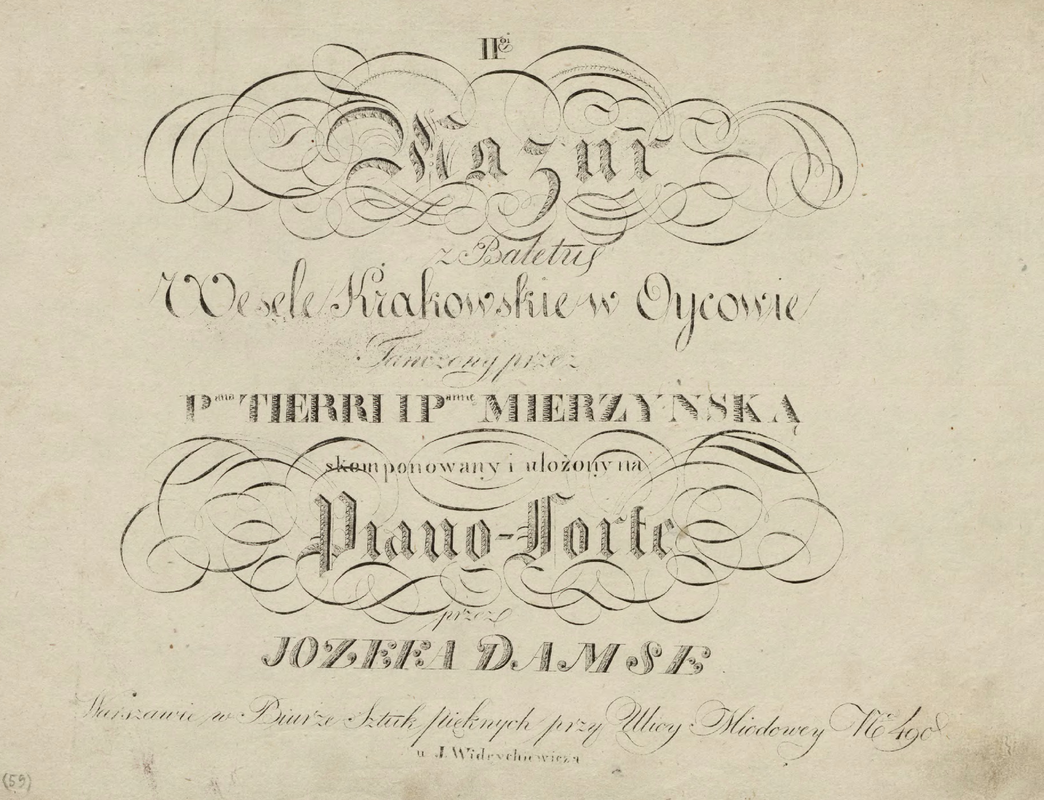 IIgi
Mazur
z Baletu
Wesele Krakowskie w Oycowie
Tańczony przez
Pana TIERRI I Pannę MIERZYŃSKĄ
skomponowany i ułożony na
Piano-Forte
przez
JOZEFA DAMSE
Warszawie w Biurze Sztuk pięknych przy Ulicy Miodowey No 490
u J. Widrychiewicza
(59)